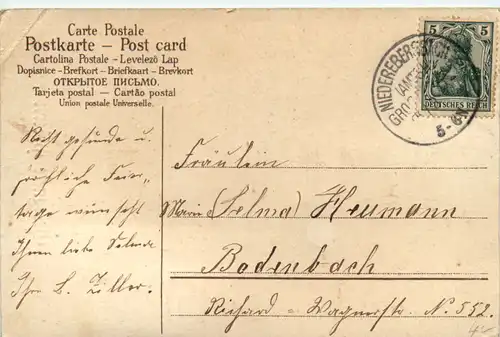 Carte Postale
Postkarte – Post card
Cartolina Postale - Levelező Lap
Dopisnice - Brefkort - Briefkaart - Brevkort
ОТКРЫТОЕ ПИСЬМО.
Tarjeta postal – Cartão postal
Union postale Universelle.
5 5
DEUTSCHES REICH
NIEDEREBERSBACH
5-6N
Recht gesunde u.
fröhliche Feier-
tage wünscht
Ihnen liebe Selma
Ihre L. Ziller.
Fräulein
Marie (Selma) Heumann
Bodenbach
Richard - Wagnerstr. N. 552.